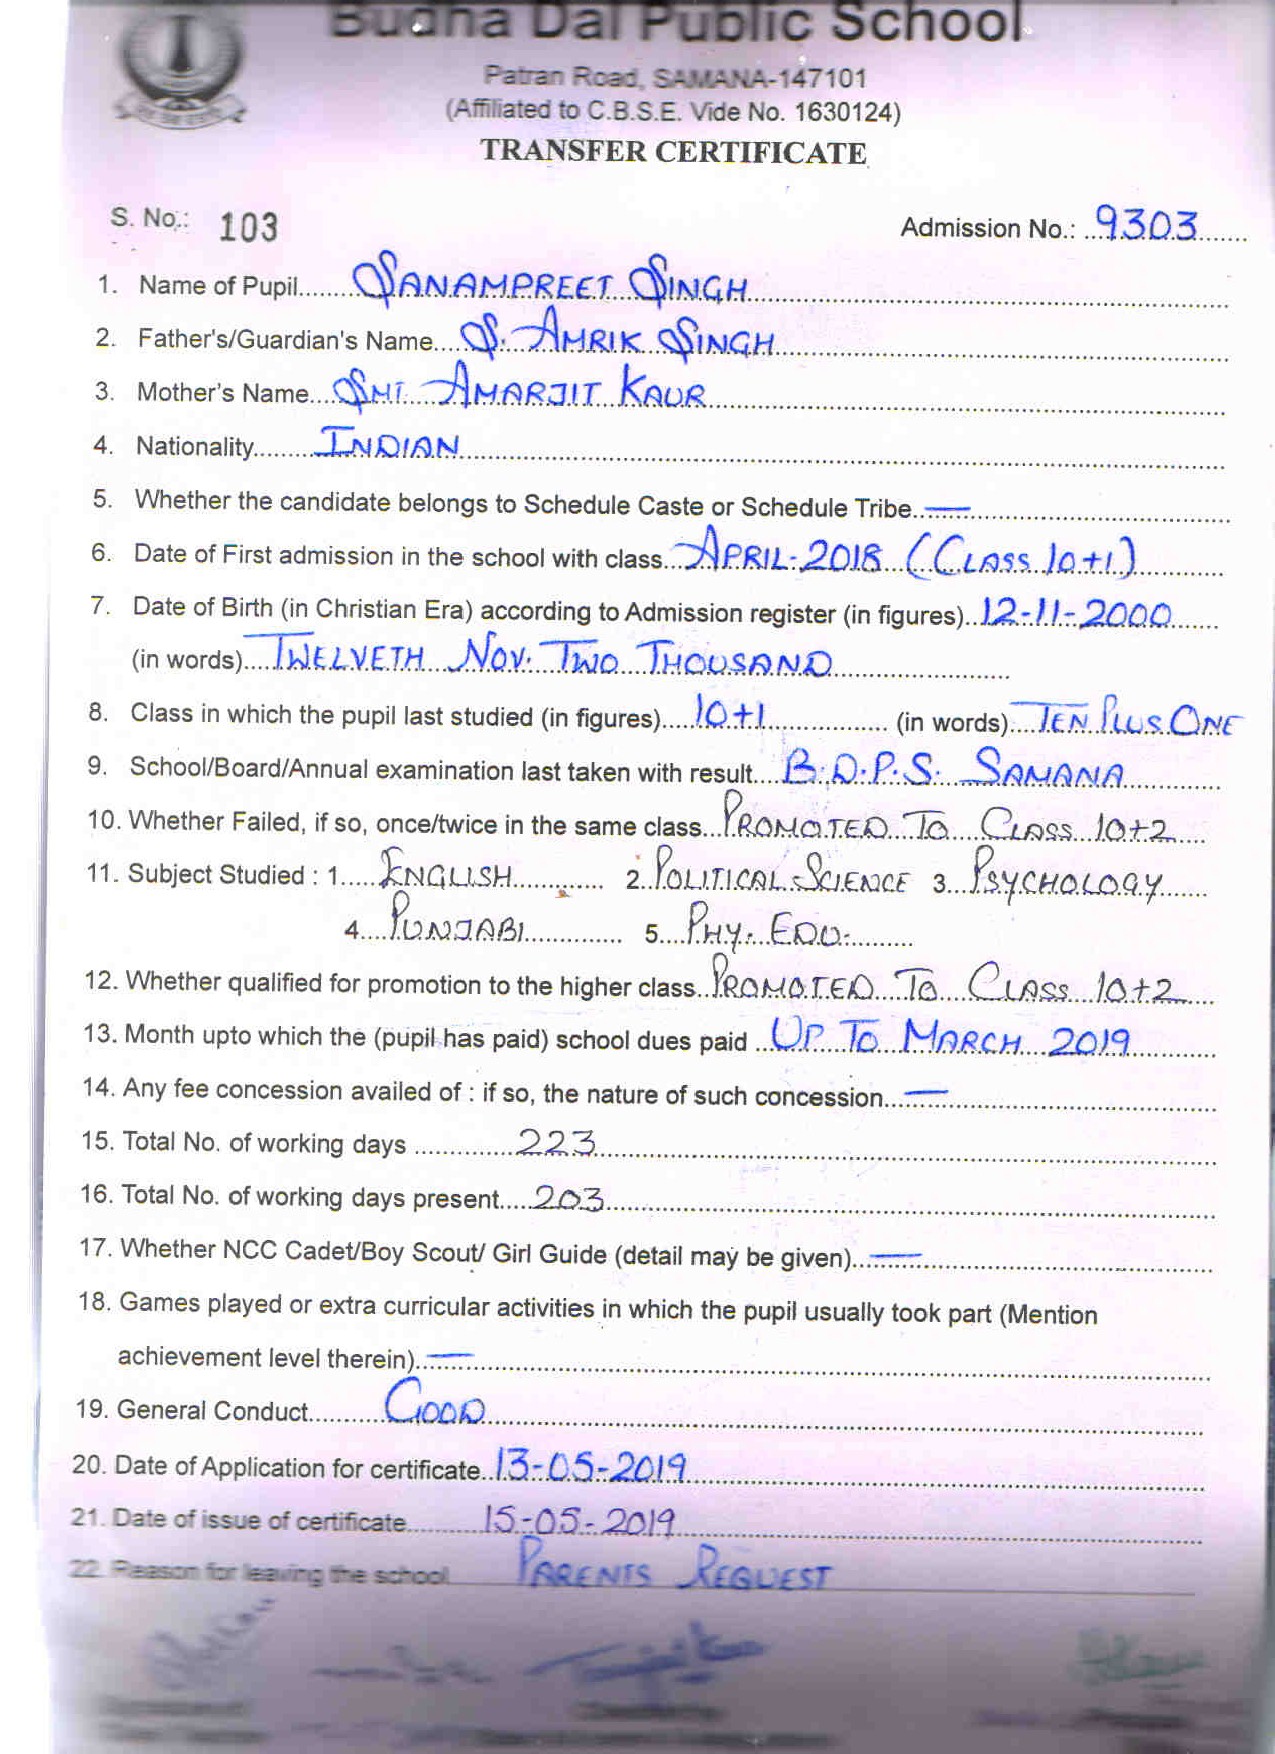 Budha Dal Public School
Patran Road, SAMANA-147101
(Affiliated to C.B.S.E. Vide No. 1630124)
TRANSFER CERTIFICATE
S. No.: 103 Admission No.: 9303
1. Name of Pupil SANAMPREET SINGH
2. Father's/Guardian's Name S. AMRIK SINGH
3. Mother's Name SMT. AMARJIT KAUR
4. Nationality INDIAN
5. Whether the candidate belongs to Schedule Caste or Schedule Tribe —
6. Date of First admission in the school with class APRIL-2018 (CLASS 10+1)
7. Date of Birth (in Christian Era) according to Admission register (in figures) 12-11-2000
(in words) TWELVETH NOV. TWO THOUSAND
8. Class in which the pupil last studied (in figures) 10+1 (in words) TEN PLUS ONE
9. School/Board/Annual examination last taken with result B.D.P.S. SAMANA
10. Whether Failed, if so, once/twice in the same class PROMOTED TO CLASS 10+2
11. Subject Studied : 1 ENGLISH 2. POLITICAL SCIENCE 3 PSYCHOLOGY
4 PUNJABI 5 PHY. EDU.
12. Whether qualified for promotion to the higher class PROMOTED TO CLASS 10+2
13. Month upto which the (pupil has paid) school dues paid UP TO MARCH 2019
14. Any fee concession availed of : if so, the nature of such concession —
15. Total No. of working days 223
16. Total No. of working days present 203
17. Whether NCC Cadet/Boy Scout/ Girl Guide (detail may be given) —
18. Games played or extra curricular activities in which the pupil usually took part (Mention
achievement level therein) —
19. General Conduct GOOD
20. Date of Application for certificate 13-05-2019
21. Date of issue of certificate 15-05-2019
22. Reason for leaving the school PARENTS REQUEST